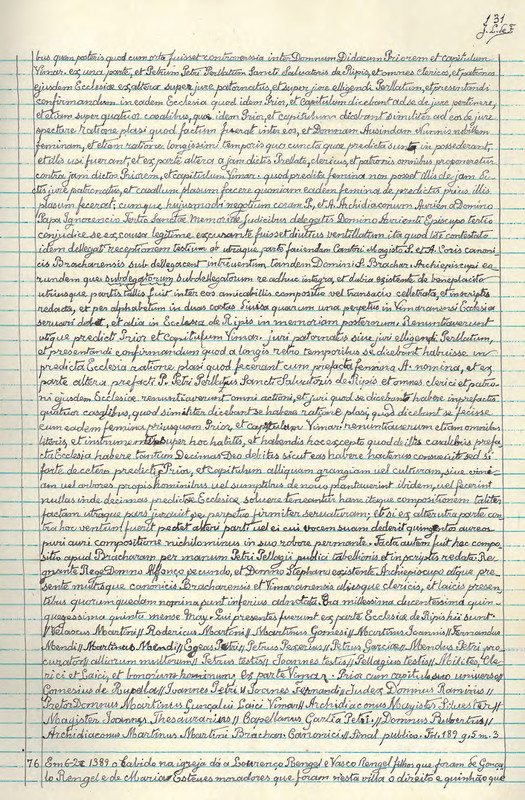 131
bus quem posteris quod cum orta fuisset controverssia inter Domnum Didacum Priorem et capitulum
Vimar. ex una parte, et Petrum Petri Perllatum Sancti Salvatoris de Ripis, et omnes clericos, et patronos
ejusdem Ecclesiæ ex altera super jure patornatus et super jure elligendi Perllatum, et presentandi
confirmandum in eadem Ecclesia quod idem Prior, et Capitulum dicebant ad se de jure pertinere,
et etiam super quatuor casalibus, quos idem Prior, et capitulum dicebant similiter ad eos de jure
spectare ratione plasi quod factum fuerat inter eos, et Donnam Ausindam Nunnis nobilem
feminam, et etiam ratione longissimi temporis quo cuncta quæ predicta sunt in possederant,
et illis usi fuerant et ex parte altera a jam dictis Prellato, clericis, et patronis omnibus proponeretur
contra jam dictos Priorem, et capitulum Vimar. quod predicta femina non potest illis de jam
tis jure patronatus, et casallum plasum facere quoniam eadem femina de predictis prius illis
plasum fecerat, cumque hujusmodi negotium coram P. et A. Archidiaconum a Domino
Papa Ignocencio Tertio Sanctæ Memoriæ Judicibus delegatis Domino Episcopo tertio
conjudice se ex causa legitime excusante fuisset diutius ventillatum ita quod liti contestato
idem dellegati receptionem testium ab utraque parte faciendam Cantori Magistro P. et A. Coris canoni-
cis Bracharensis sub dellegacent intreuentum, tandem Domini S. Brachar. Archiepiscopi eo-
rundem que subdelegatorum subdellegatorum re adhuc integra, et dubia existente de beneplacito
utriusque partis tallis fuit inter eos amicabillis compositio vel transacio cellebrata, et in scriptis
redacta, et per alphabetum in duas cartas divisa quarum una perpetuo in Vimaranensi Ecclesia
seruari debet, et alia in Ecclesia de Ripis in memoriam posterorum. Renuntiaverunt
utique predicti Prior et Capitulum Vimar. juri patornatus siue juri elligendi Perllatum,
et presentandi confirmandum quod a longis retro temporibus se dicebant habuisse in
predicta Ecclesia ratione plasi quod fecerant cum prefacta femina A. nomina, et ex
parte altera prefacti P. Petri Perllatus Sancti Salvatoris de Ripis et omnes clerici et patro-
ni ejusdem Ecclesiæ renuntiaverunt omni actioni, et juri quod se dicebant habere in prefactis
quatuor casalibus, quod similiter dicebant se habere ratione plasi, quod dicebant se fecisse
cum eadem femina priusquam Prior, et Capitulum Vimar. renuntiaverunt etiam omnibus
literis, et instrumentis super hoc habitis, et habendis hoc excepto quod de illis casalibus prefa-
cta Ecclesia habere tantum Decimas Deo debitas sicut eas habere hactenus consuevit sed si
forte de cetero predicti Prior, et capitulum alliquam grangiam vel culturam, siue vine-
am vel arbores propriis hominibus vel sumptibus de nouo plantauerint ibidem, vel fecerint
nullas inde decimas predictæ Ecclesiæ soluere teneantur hanc itaque compositionem taliter
factam utraque pars juravit se perpetuo firmiter seruaturam; et si ex alterutra parte con-
tra hoc ventum fuerit pectet alteri parti vel ei cui vocem suam dederit quingentos aureos
puri auri compositione nichilominus in suo robore permanente. Facta autem fuit hec compo-
sitio apud Bracharam per manum Petri Pellagii publici tabellionis et in scriptis redacta Re-
gnante Rege Domno Alfonço secundo, et Domno Stephano existente Archiepiscopo atque pre-
sente multisque canonicis Bracharensis et Vimaranensis aliisque clericis, et laicis presen-
tibus quorum quedam nomina sunt inferius adnotata. Era millessima ducentessima quin-
quagessima quinta mense May. Qui presentes fuerunt ex parte Ecclesiæ de Ripis hii sunt.
Velascus Martini // Rodericus Martini // Martinus Gomesi // Martinus Joannis // Fernandus
Mendi // Martinus Mendi // Egeas Petri // Petrus Pacerius // Petrus Garcia // Mendus Petri pro-
curator alliorum multorum // Petrus testis // Joannes testis // Pellagius testis // Milites, Cle-
rici et Laici, et bonorum hominum. Ex parte Vimar. Prior cum capitulo suo universo //
Gomesius de Rupella // Joannes Petri // Joannes Fernandi // Judex Domnus Raminus //
Pretor Domnus Martinus Gunçalui Laici Viman // Archidiaconus Magister Siluester //
Magister Joannis Thesaurarius // Capellanus Garsia Petri // Domnus Rubertus //
Archidiaconus Martinus Martini Brachar. Canonici // Sinal publico. Fol. 189 g. 5 m. 3
76 Em 6-2º 1389 o Cabido na igreja dá a Lourenço Rengel e Vasco Rengel filhos que foram de Gonça-
lo Rengel e de Maria Esteves moradores que foram nesta villa o direito e quinhão que